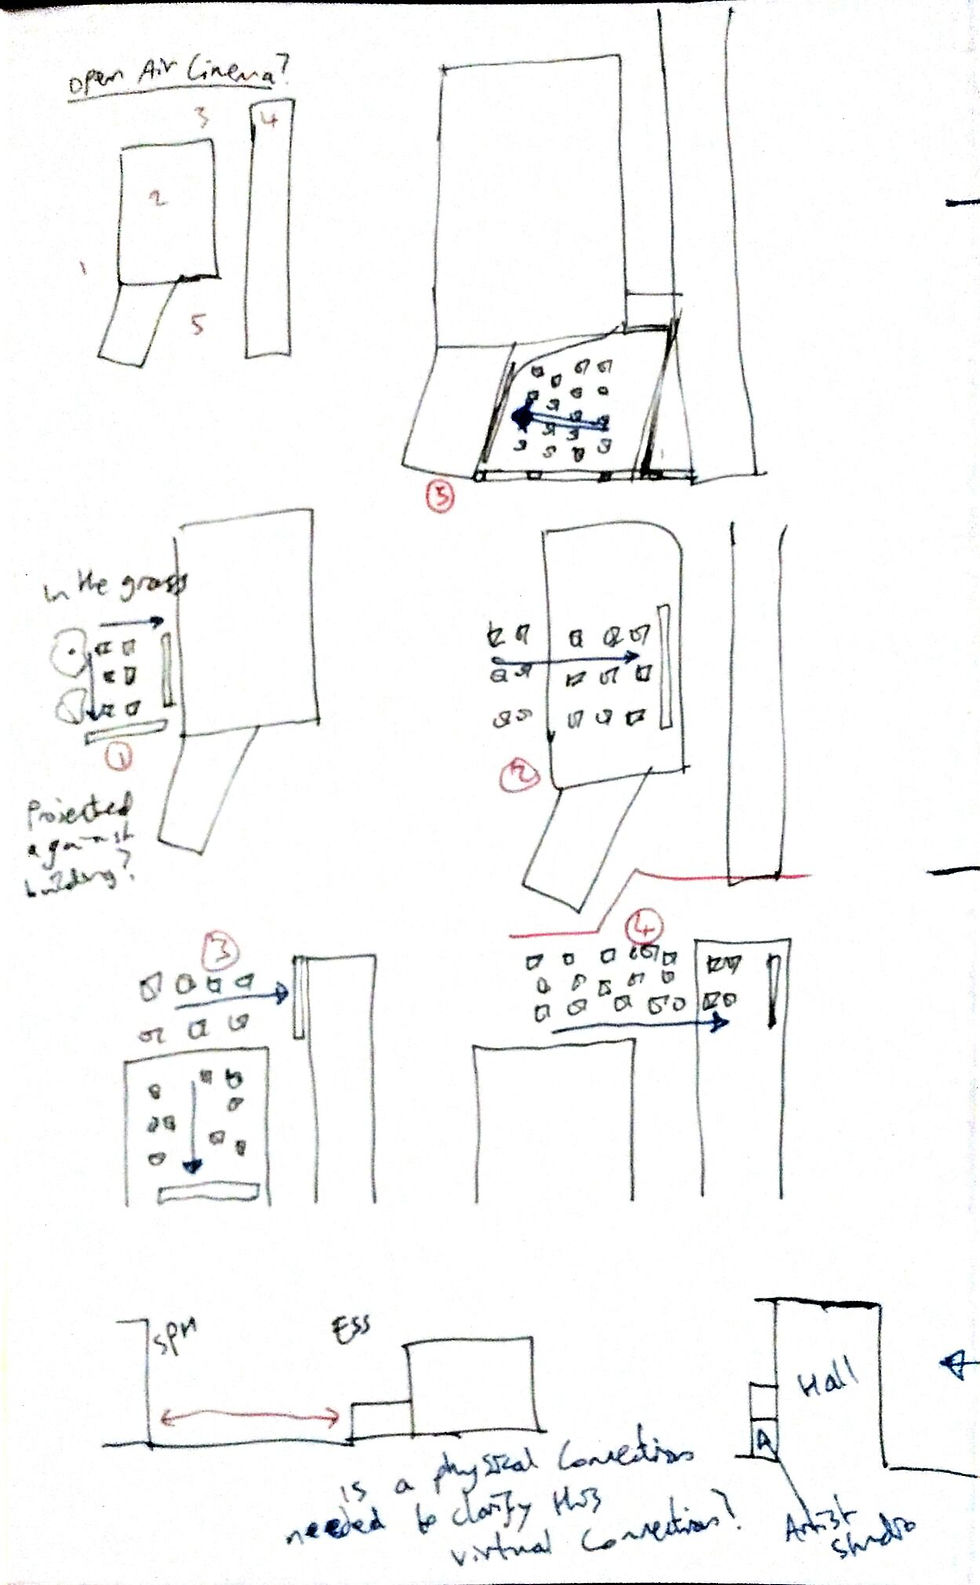 Open Air Cinema?
3
4
2
1
5
5
In the grass
1
Projected
against
building?
2
3
4
SPM
ESS
Hall
A
is a physical connection
needed to clarify this
virtual connection?
Artist
studio